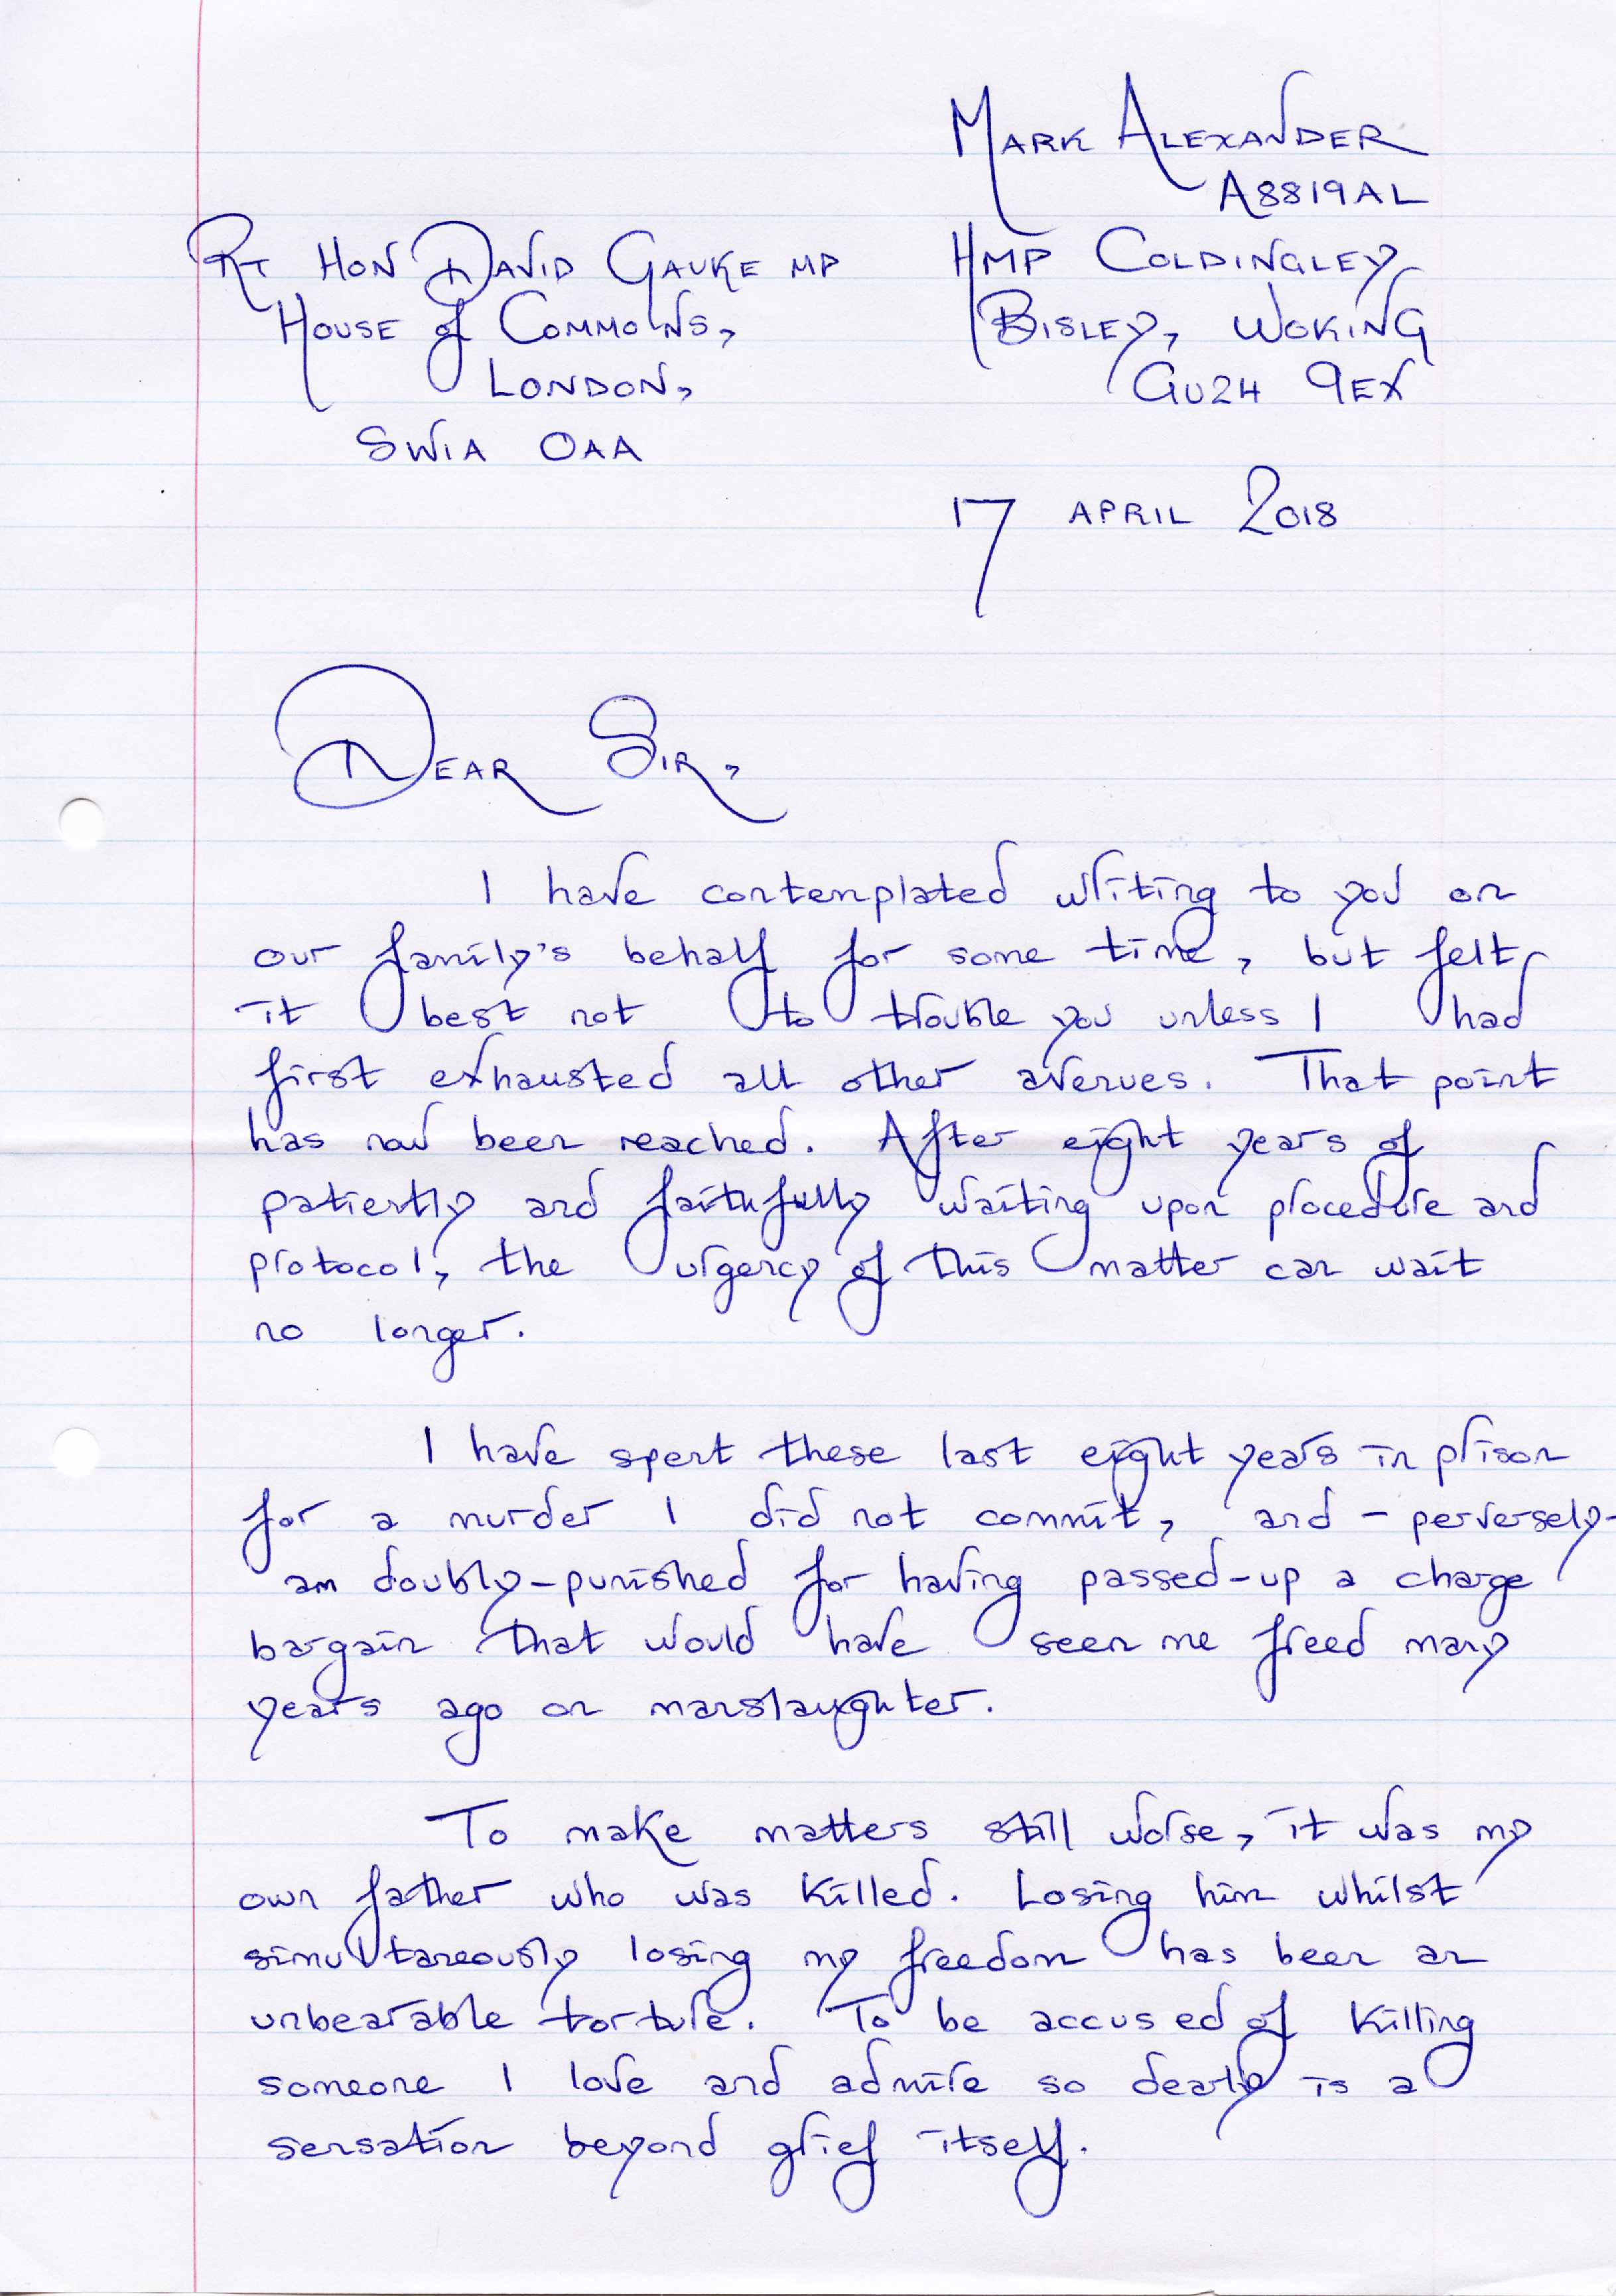 MARK ALEXANDER
A8819AL
HMP COLDINGLEY
BISLEY, WOKING
GU24 9EX
RT HON DAVID GAUKE MP
HOUSE of COMMONS,
LONDON,
SW1A 0AA
17 APRIL 2018
DEAR SIR,
I have contemplated writing to you on
our family's behalf for some time, but felt
it best not to trouble you unless I had
first exhausted all other avenues. That point
has now been reached. After eight years of
patiently and faithfully waiting upon procedure and
protocol, the urgency of this matter can wait
no longer.
I have spent these last eight years in prison
for a murder I did not commit, and - perversely -
am doubly-punished for having passed-up a charge
bargain that would have seen me freed many
years ago on manslaughter.
To make matters still worse, it was my
own father who was killed. Losing him whilst
simultaneously losing my freedom has been an
unbearable torture. To be accused of killing
someone I love and admire so dearly is a
sensation beyond grief itself.